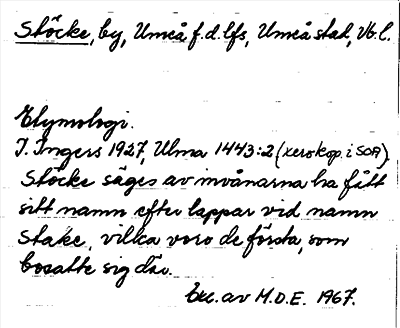 Stöcke, by, Umeå f.d. lfs, Umeå stad, Vb. l.
Etymologi.
I. Ingers 1927, Ulma 1443:2 (xeroxkop. i SOA)
Stöcke säges av invånarna ha fått
sitt namn efter lappar vid namn
Stake, vilka voro de första, som
bosatte sig där.
Exc. av M.D.E. 1967.